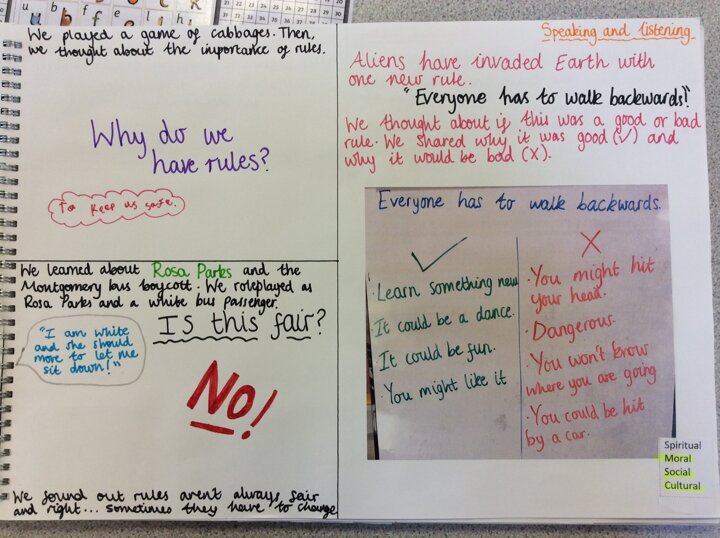 We played a game of cabbages. Then,
we thought about the importance of rules.
Why do we
have rules?
To keep us safe.
We learned about Rosa Parks and the
Montgomery bus boycott. We roleplayed as
Rosa Parks and a white bus passenger.
Is this fair?
"I am white
and she should
move to let me
sit down!"
No!
We found out rules aren't always fair
and right... sometimes they have to change
Speaking and listening
Aliens have invaded Earth with
one new rule.
"Everyone has to walk backwards!"
We thought about if this was a good or bad
rule. We shared why it was good (✓) and
why it would be bad (X).
Everyone has to walk backwards.
✓
· Learn something new
· It could be a dance.
· It could be fun.
· You might like it
X
· You might hit
your head.
· Dangerous.
· You won't know
where you are going
· You could be hit
by a car.
Spiritual
Moral
Social
Cultural